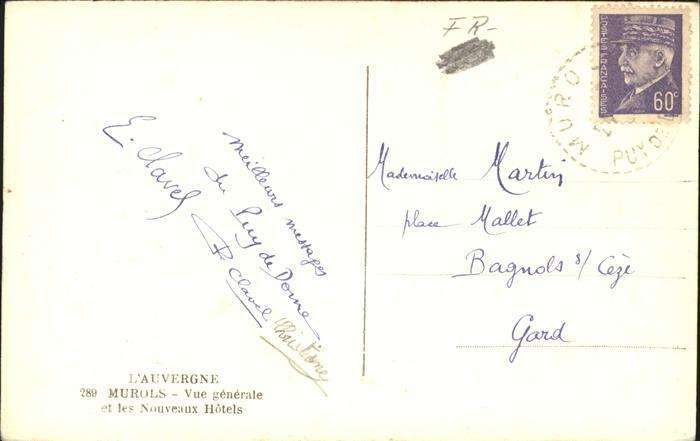 FR-
MURO
PUY DE
POSTES FRANÇAISES
60c
E. Clavel
Meilleurs messages
du Puy de Dome
P Clavel
Mademoiselle Martin
place Mallet
Bagnols s/ Cèze
Gard
L'AUVERGNE
289 MUROLS - Vue générale
et les Nouveaux Hôtels